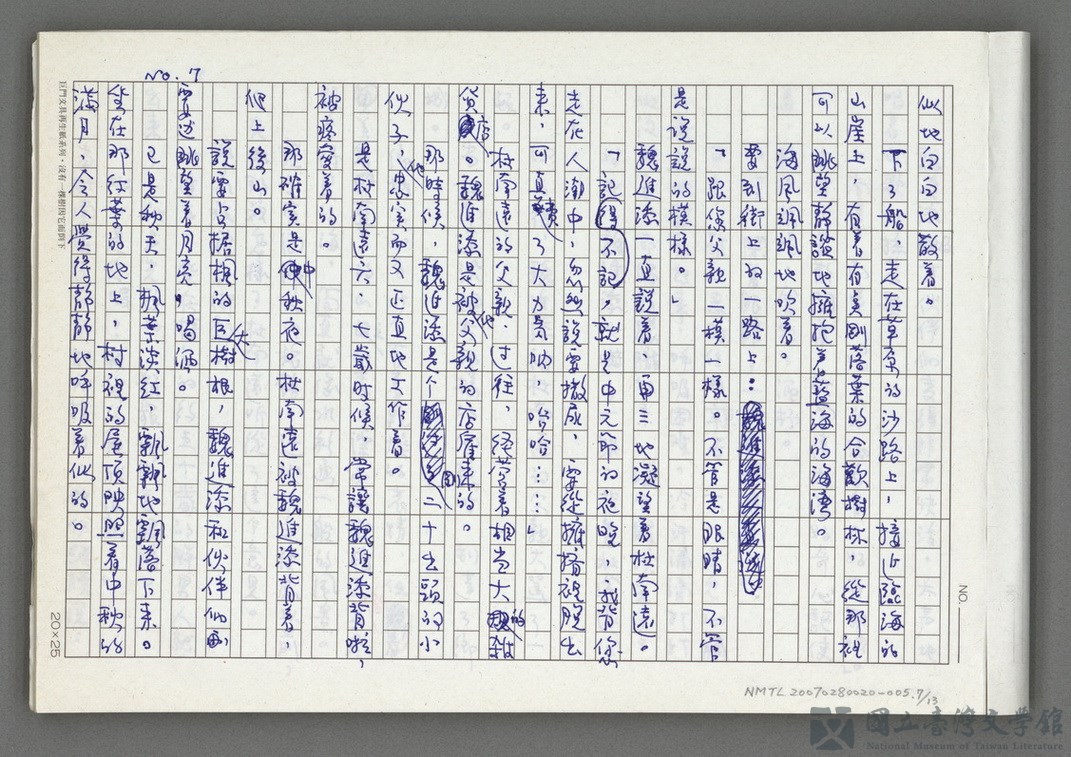 No. 7
似地白白地散着。
下了船，走在草哀的沙路上，接近臨海的
山崖上，有着有真剛落葉的合歡樹林，從那裡
可以眺望靜謐地擁抱着藍海的海湾。
海風颯颯地吹着。
要到街上的一路上：
「跟你父親一模一樣。不管是眼睛，不管
是說說的模樣。」
魏進添一直說着，再三地凝望着杜南遠。
「記得不記。就是中元節的夜晚，我背您
走在人潮中，忽然說要撒尿，要從擁擠裡脫出
來，可真費了大力氣吶，哈哈……」
杜南遠的父親，过往，經营着相当大的雜
貨店。魏進添是被他父親的店雇来的。
那時候，魏進添是个剛二十出頭的小
伙子，他忠实而又正直地工作着。
是杜南遠六、七歲时候，常讓魏進添背啦，
被疼爱着的。
那確实是中秋夜。杜南遠被魏進添背着，
爬上後山。
說要占据楓的巨大樹根，魏進添和伙伴们
要边眺望着月亮。喝酒。
已是秋天，楓葉淡红，飄飄地凋落下来。
坐在那红葉的地上，村裡的屋頂映照着中秋的
滿月，令人覺得靜靜地呼吸着似的。
巨門文具再生紙系列・沒有一棵樹因它而倒下
20×25
NO.
NMTL 20070280020-005. 7/13
國立臺灣文學館
National Museum of Taiwan Literature